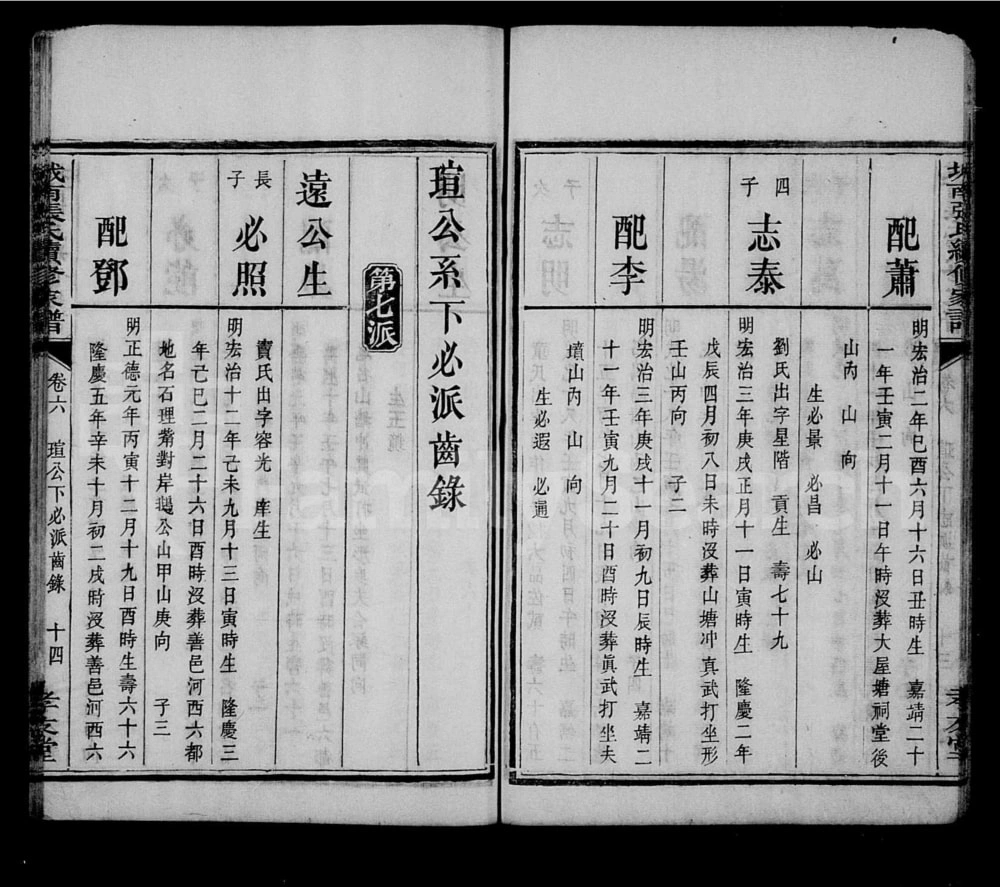 配蕭
明宏治二年巳酉六月十六日丑時生 嘉靖二十
一年壬寅二月十一日午時沒葬大屋塘祠堂後
山內 山 向
生必景 必昌 必山
四子
志泰
劉氏出字星階 貢生 壽七十九
明宏治三年庚戌正月十一日寅時生 隆慶二年
戊辰四月初八日未時沒葬山塘冲真武打坐形
壬山丙向 子二
配李
明宏治三年庚戌十一月初九日辰時生 嘉靖二
十一年壬寅九月二十日酉時沒葬眞武打坐夫
墳山內 山 向
生必遐 必通
瑄公系下必派齒錄
第七派
遠公生
長子
必照
竇氏出字容光 庠生
明宏治十二年己未九月十三日寅時生 隆慶三
年己巳二月二十六日酉時沒葬善邑河西六都
地名石理觜對岸鵝公山甲山庚向 子三
配鄧
明正德元年丙寅十二月十九日酉時生壽六十六
隆慶五年辛未十月初二戌時沒葬善邑河西六
城南張氏續修家譜
卷六
瑄公下必派齒錄
十四
孝友堂